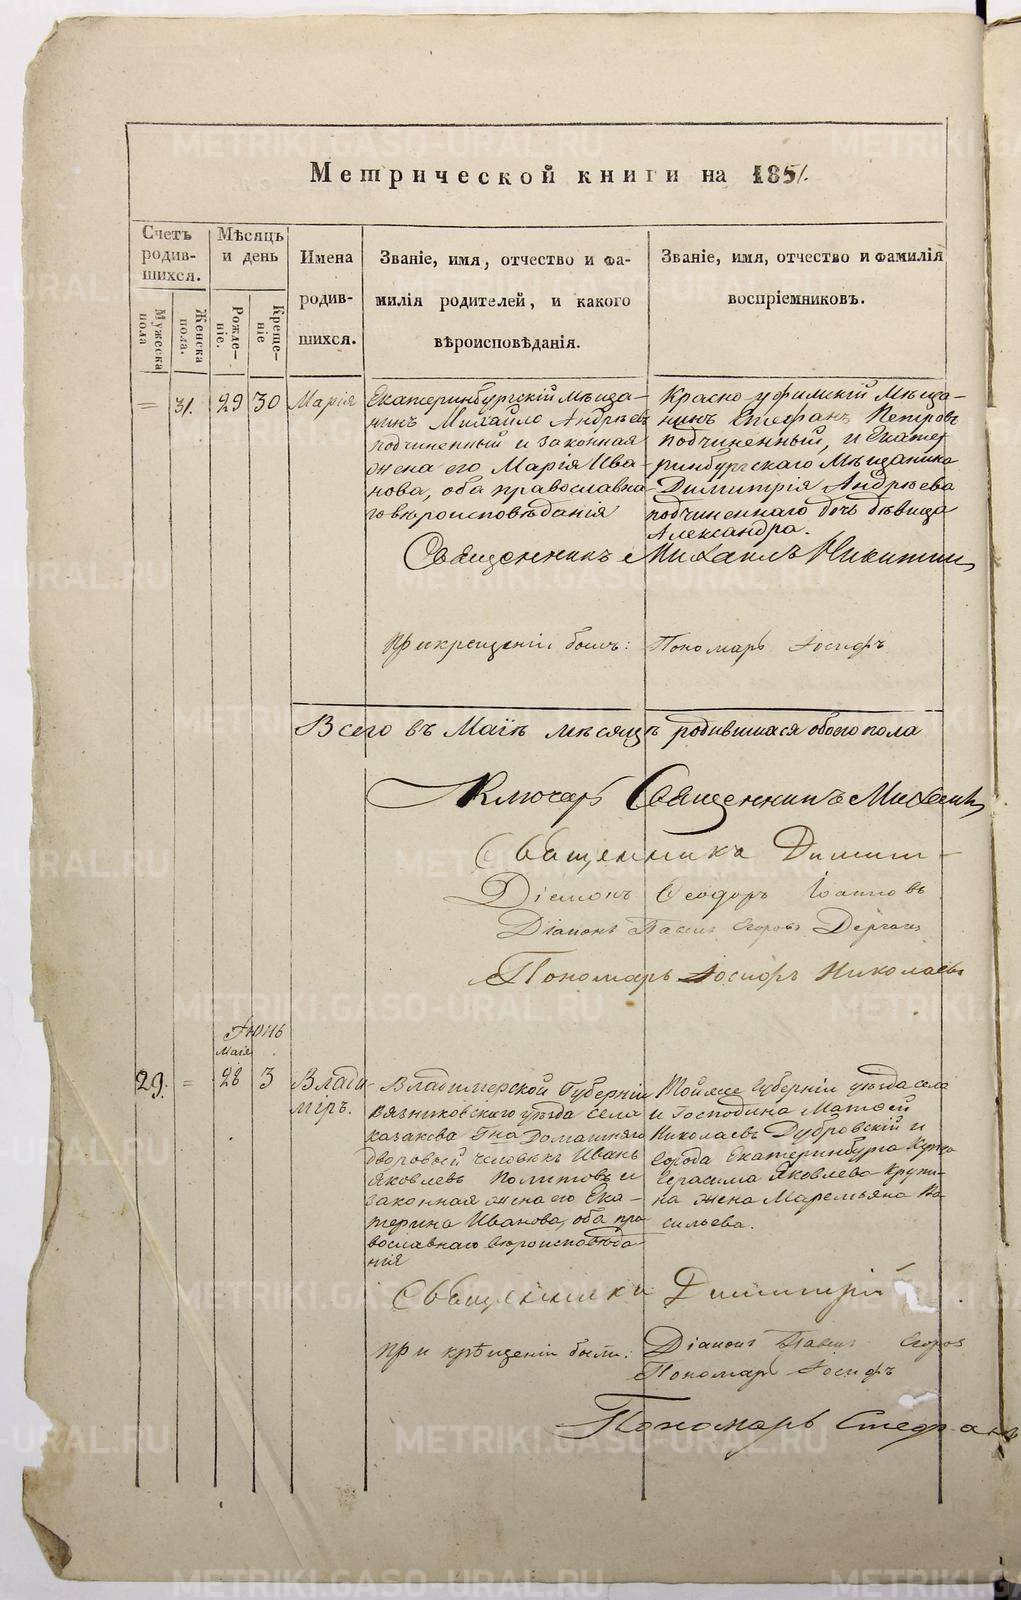 Метрической книги на 1851.
Счетъ родив-шихся.
Мѣсяцъ и день
Имена родив-шихся.
Званіе, имя, отчество и фа-
милія родителей, и какого
вѣроисповѣданія.
Званіе, имя, отчество и фамилія
воспріемниковъ.
Мужеска пола
Женска пола.
Рожде-ніе.
Креще-ніе
= 31. 29 30 Марія
Екатеринбургскій мѣща-
нинъ Михайло Андрѣевъ
подчиненный и законная
жена его Марія Ива-
нова, оба православна-
го вѣроисповѣданія
Красноуфимскій Мѣща-
нинъ Стефанъ Петровъ
подчиненный, и Екате-
ринбургскаго Мѣщанина
Димитрія Андрѣева
подчиненнаго дочь дѣвица
Александра.
Священникъ Михаилъ Никитин
При крещеніи былъ: Пономарь Іосифъ
Всего въ Маіѣ мѣсяцѣ родившихся обоего пола
Ключарь Священникъ Михаилъ
Священника Димит-
Діаконъ Ѳеодоръ Іоанновъ
Діаконъ Павелъ Егоровъ
Пономарь Іосифъ Николаевъ
Іюнь
Маія
29. = 28 3 Влади-
міръ.
Владимерской Губерніи
Вязниковскаго уѣзда села
Казакова Гна Домашняго
дворовый человѣкъ Иванъ
Яковлевъ Политовъ и
законная жена его Ека-
терина Иванова, оба пра-
вославнаго вѣроисповѣда-
нія
Той же Губерніи уѣзда села
и Господина Матѳей
Николаевъ Дубровскій и
города Екатеринбурга Купца
Герасима Яковлева Крупи-
на жена Маремьяна Ва-
сильева.
Священника Димитрій
При крещеніи были: Діаконъ Павелъ Егоров
Пономарь Іосифъ
Пономарь Стефанъ
METRIKI.GASO-URAL.RU